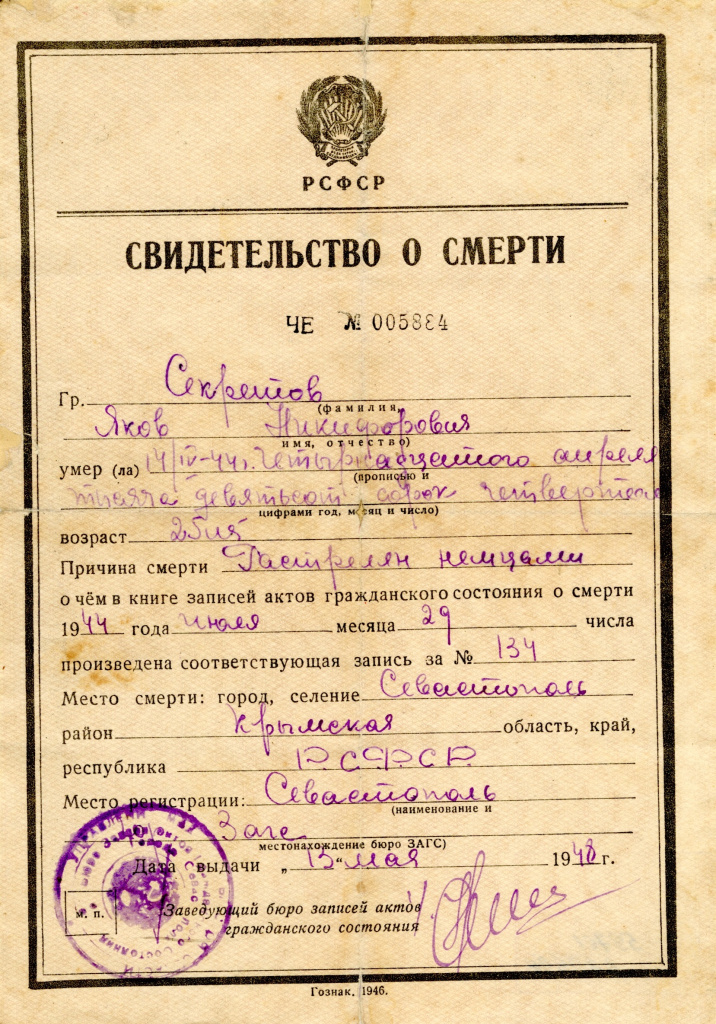 РСФСР
СВИДЕТЕЛЬСТВО О СМЕРТИ
ЧЕ № 005884
Гр. Секретов
(фамилия,
Яков Никифорович
имя, отчество)
умер (ла) 14/IV-44г. Четырнадцатого апреля
(прописью и
тысяча девятьсот сорок четвертого
цифрами год, месяц и число)
возраст 25
Причина смерти Растрелян немцами
о чём в книге записей актов гражданского состояния о смерти
1944 года июля месяца 29 числа
произведена соответствующая запись за № 134
Место смерти: город, селение Севастополь
район Крымская область, край,
республика РСФСР
Место регистрации: Севастополь
(наименование и
Загс
местонахождение бюро ЗАГС)
Дата выдачи „13“ мая 1948 г.
М. П.
Заведующий бюро записей актов
гражданского состояния
Гознак. 1946.